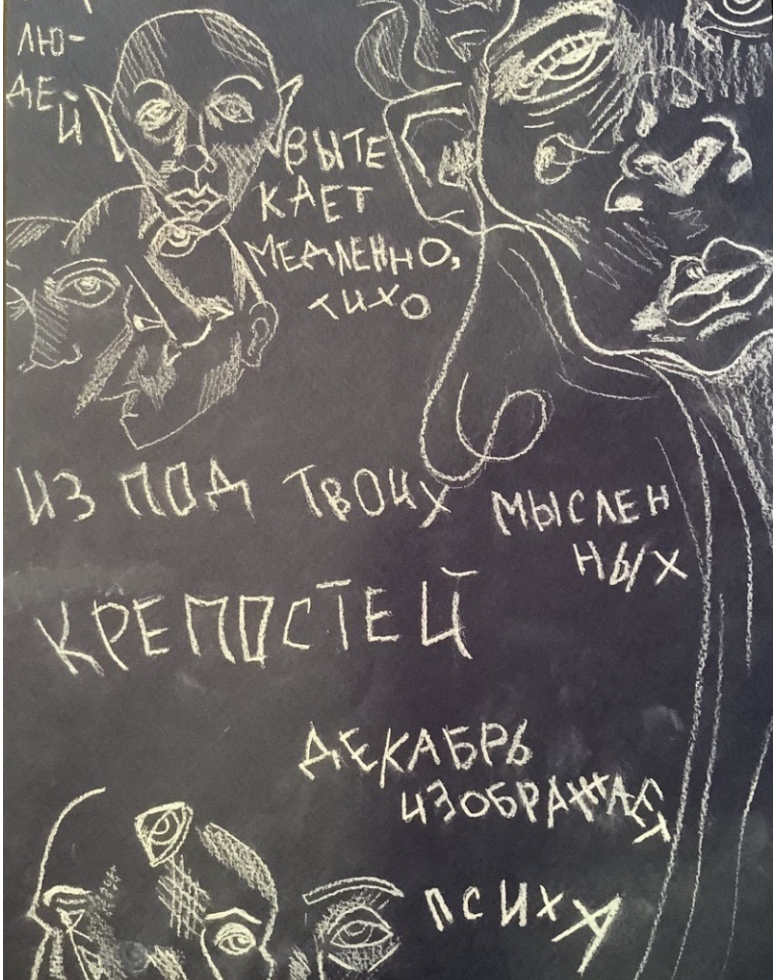 ЛЮ-
ДЕ-
Й
ВЫТЕ
КАЕТ
МЕДЛЕННО,
ТИХО
ИЗ ПОД ТВОИХ МЫСЛЕН
НЫХ
КРЕПОСТЕЙ
ДЕКАБРЬ
ИЗОБРАЖАЯ
ПСИХА